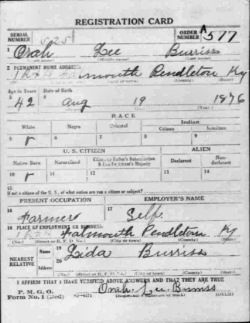 REGISTRATION CARD
SERIAL NUMBER
ORDER NUMBER A 577
1 Orah Lee Burriss
2 PERMANENT HOME ADDRESS:
Falmouth Pendleton Ky
Age in Years
Date of Birth
42 Aug 19 1876
RACE
White Negro Oriental Indian
Citizen Noncitizen
U. S. CITIZEN ALIEN
Native Born Naturalized Citizen by Father's Naturalization Declarant Non-declarant
15
If not a citizen of the U. S., of what nation are you a citizen or subject?
PRESENT OCCUPATION EMPLOYER'S NAME
Farmer Self
PLACE OF EMPLOYMENT OR BUSINESS:
Falmouth Pendleton Ky
NEAREST RELATIVE
Name
Lida Burriss
Address
Falmouth Pendleton Ky
I AFFIRM THAT I HAVE VERIFIED ABOVE ANSWERS AND THAT THEY ARE TRUE
P. M. G. O.
Form No. 1 (Red)
Orah Lee Burriss